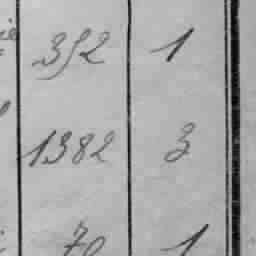 352 1
1382 3
70 1